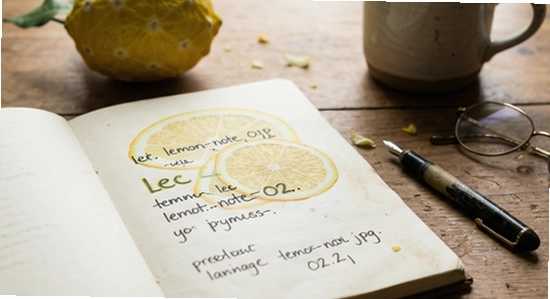 let. lemon-note, 01P.
Lec -
temnn- lec
lemot.-note-02.
yo- pymuss-.
presloux temor-nox jpg.
lannage 02.21